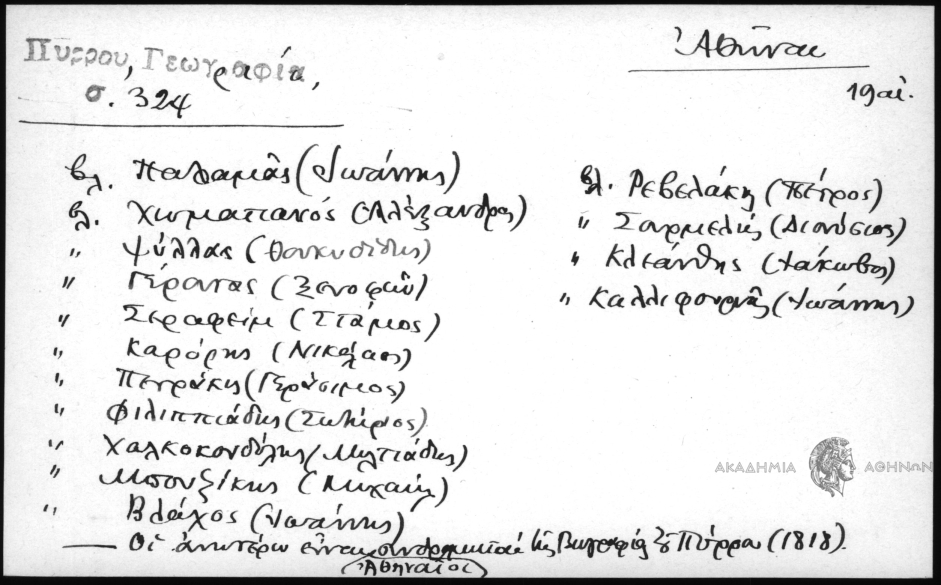 Πύρρου, Γεωγραφία,
σ. 324
Ἀθῆναι
19 αἰ.
βλ. Παλαμᾶς (Ἰωάννης)
βλ. Χωματιανός (Ἀλέξανδρος)
" Ψύλλας (Θουκυδίδης)
" Γέροντας (Ξενοφῶν)
" Σεραφείμ (Στάμος)
" Καρόρης (Νικόλαος)
" Πετράκης (Γεράσιμος)
" Φιλιππιάδης (Σωτήριος)
" Χαλκοκονδύλης (Μιλτιάδης)
" Μπουζίκης (Μιχαήλ)
" Βλάχος (Ἰωάννης)
βλ. Ρεβελάκης (Πέτρος)
" Σουρμελής (Διονύσιος)
" Κλεάνθης (Ἰάκωβος)
" Καλλιφουρνᾶς (Ἰωάννης)
— Οἱ ἀνωτέρω εἶναι συνδρομηταί τῆς Γεωγραφίας τοῦ Πύρρου (1818).
(Ἀθηναῖοι)
ΑΚΑΔΗΜΙΑ ΑΘΗΝΩΝ